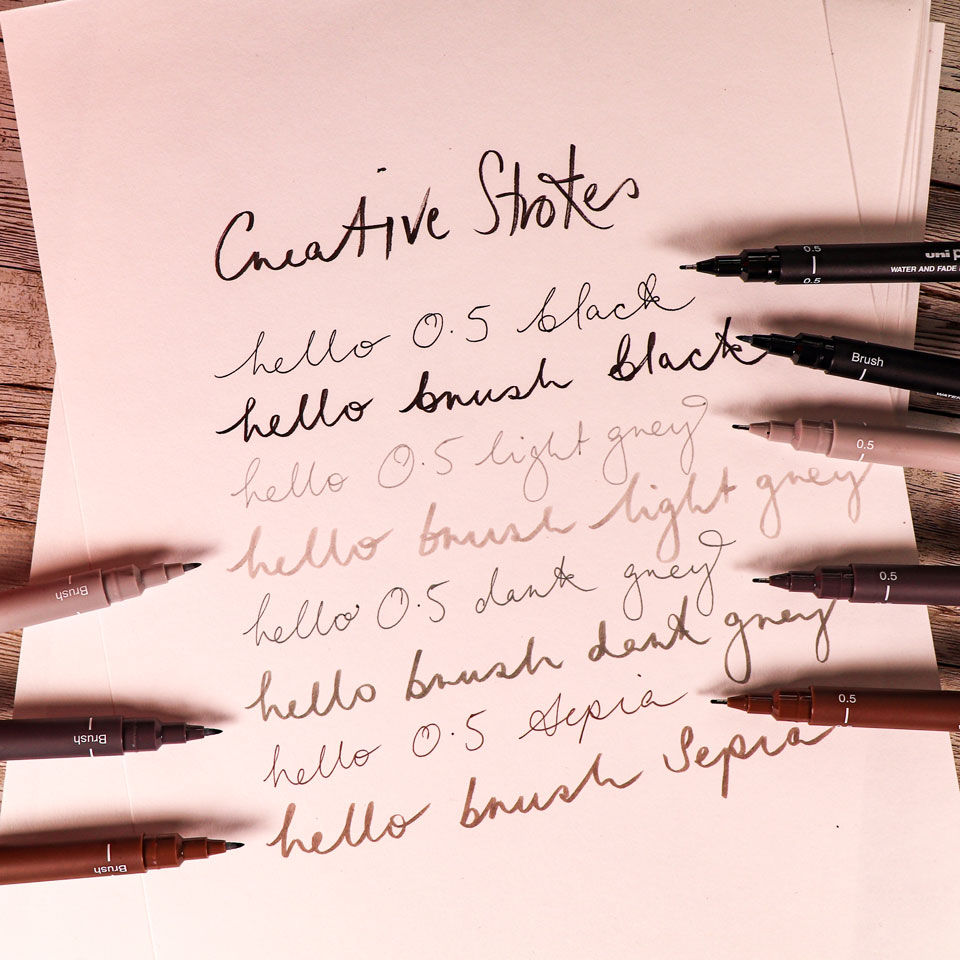 Creative Strokes
0.5
0.5
uni
WATER AND FADE
hello 0.5 black
hello brush black
Brush
hello 0.5 light grey
0.5
hello brush light grey
Brush
hello 0.5 dark grey
0.5
hello brush dark grey
hello 0.5 Sepia
0.5
Brush
hello brush Sepia
Brush